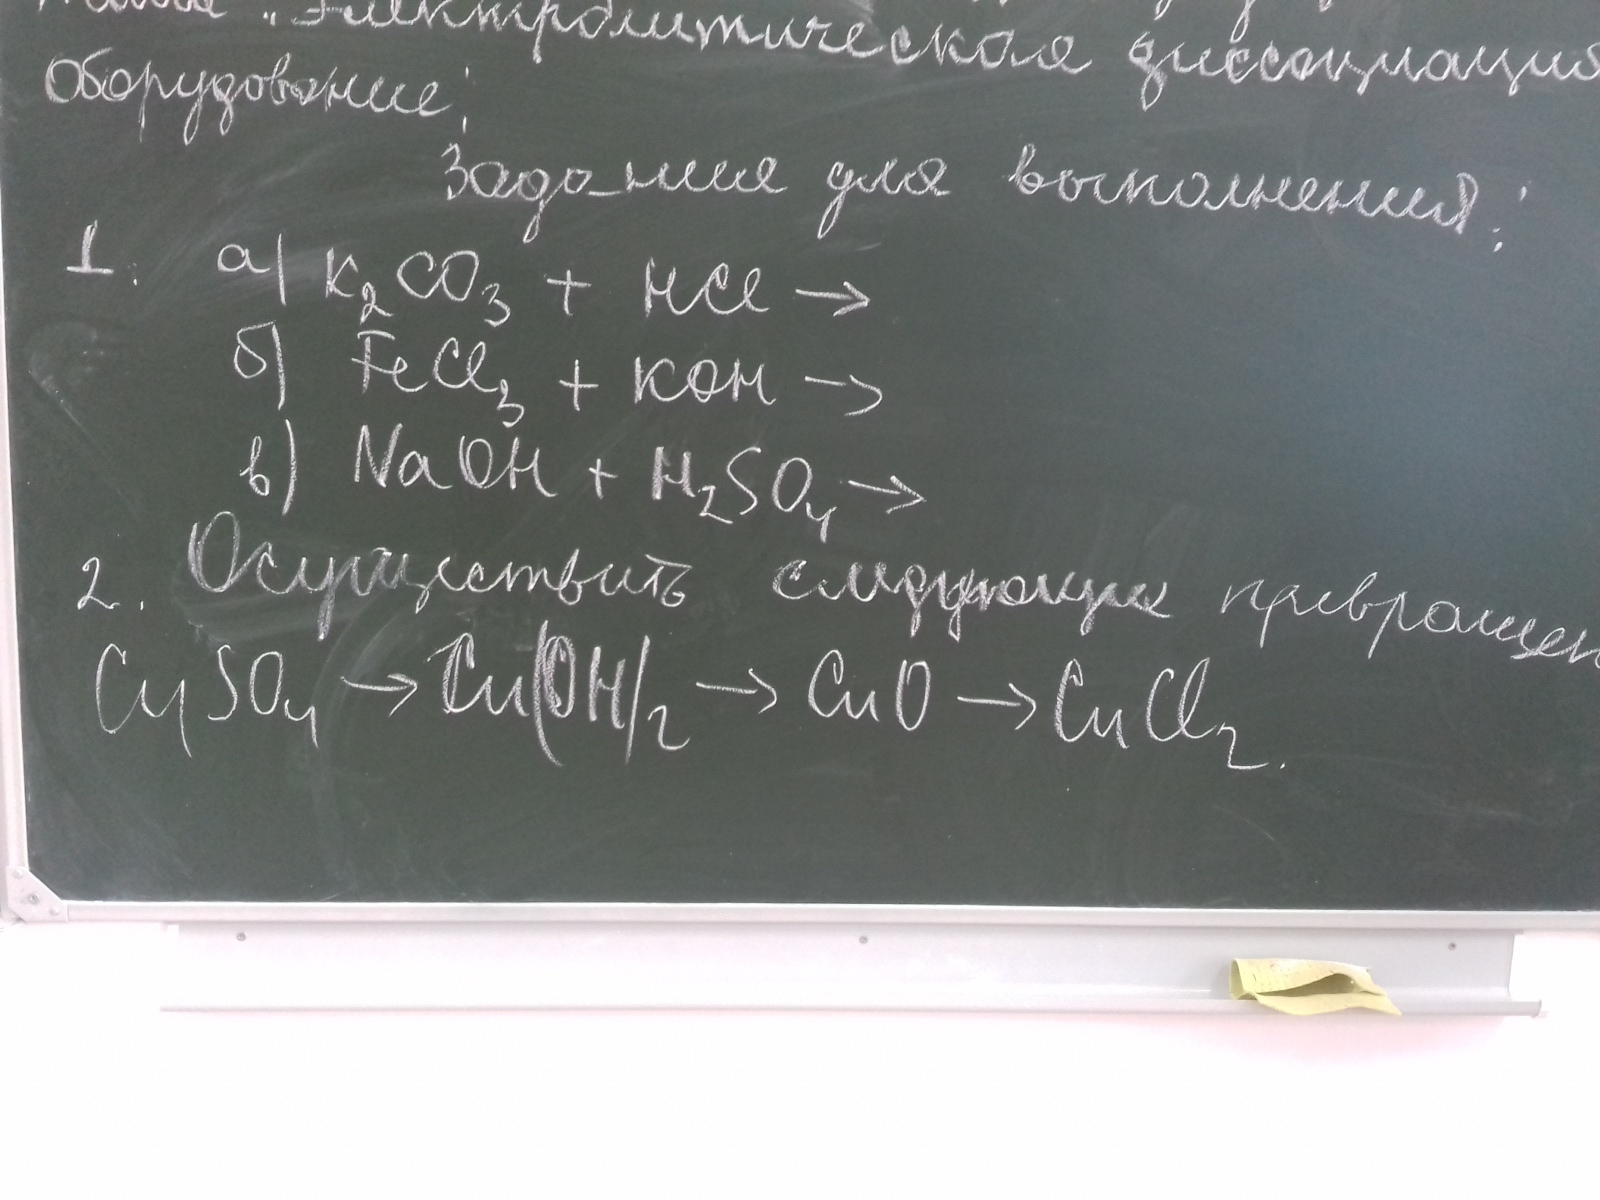 "Электролитическая диссоциация
Оборудование:
Задания для выполнения:
1. а) K₂CO₃ + HCl →
б) FeCl₃ + KOH →
в) NaOH + H₂SO₄ →
2. Осуществить следующие превращен
CuSO₄ → Cu(OH)₂ → CuO → CuCl₂.